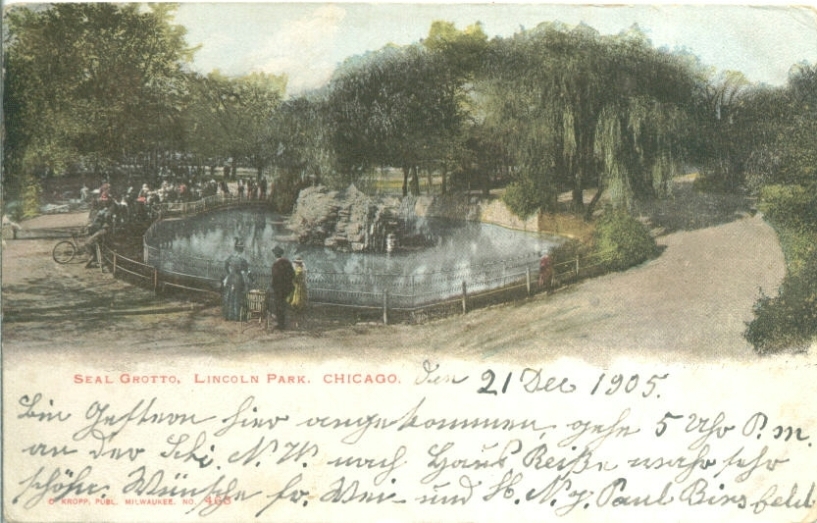 SEAL GROTTO, LINCOLN PARK. CHICAGO. den 21 Dec 1905.
Bin Gestern hier angekommen, gehe 5 Uhr P.m.
an der Chi. N. W. nach Haus Reiße war sehr
schön. Wünsche fr. Wei- und H. N. J. Paul Birsfeld
O. KROPP, PUBL. MILWAUKEE. NO. 468